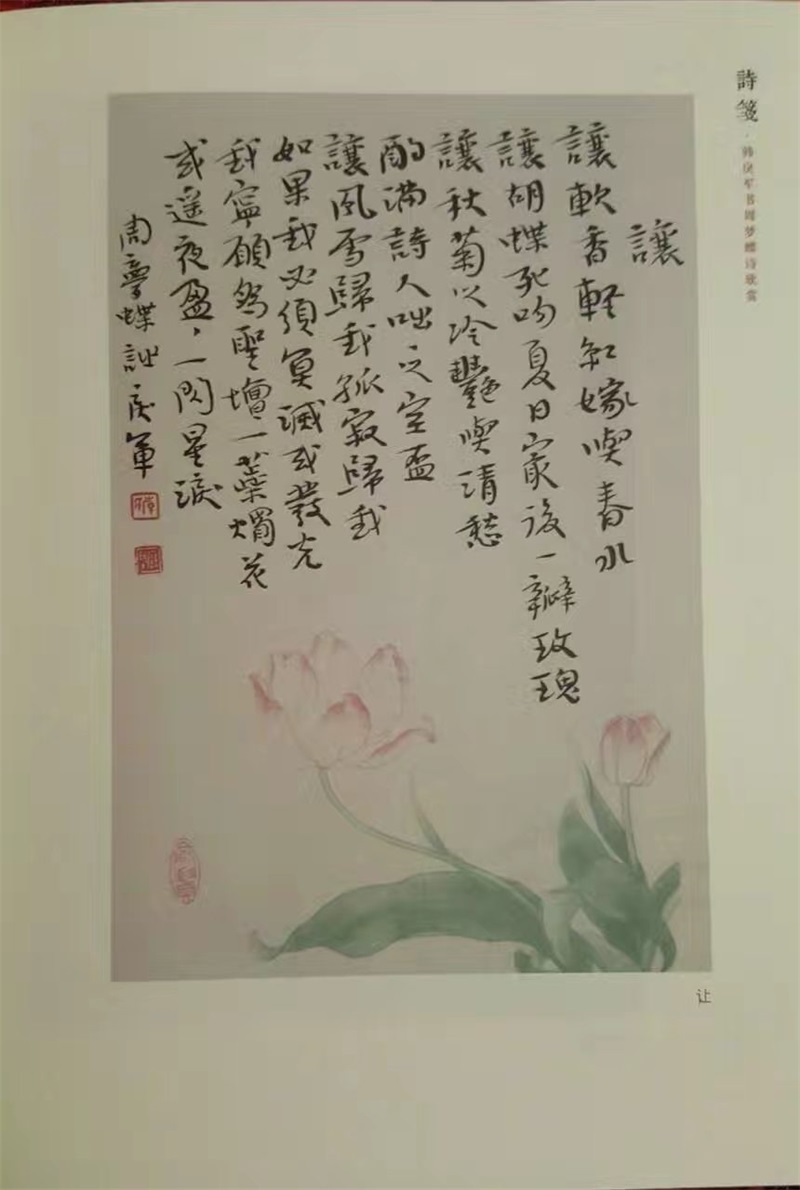 詩箋
书周梦蝶诗
讓
讓軟香輕紅嫁與春水
讓胡蝶死吻夏日最後一瓣玫瑰
讓秋菊之冷豔與清愁
酌滿詩人咄々之空盃
讓風雪歸我孤寂歸我
如果我必須冥滅或發光
我寧願為聖壇一蕊燭花
或遙夜盈々一閃星淚
周夢蝶詩 軍
让